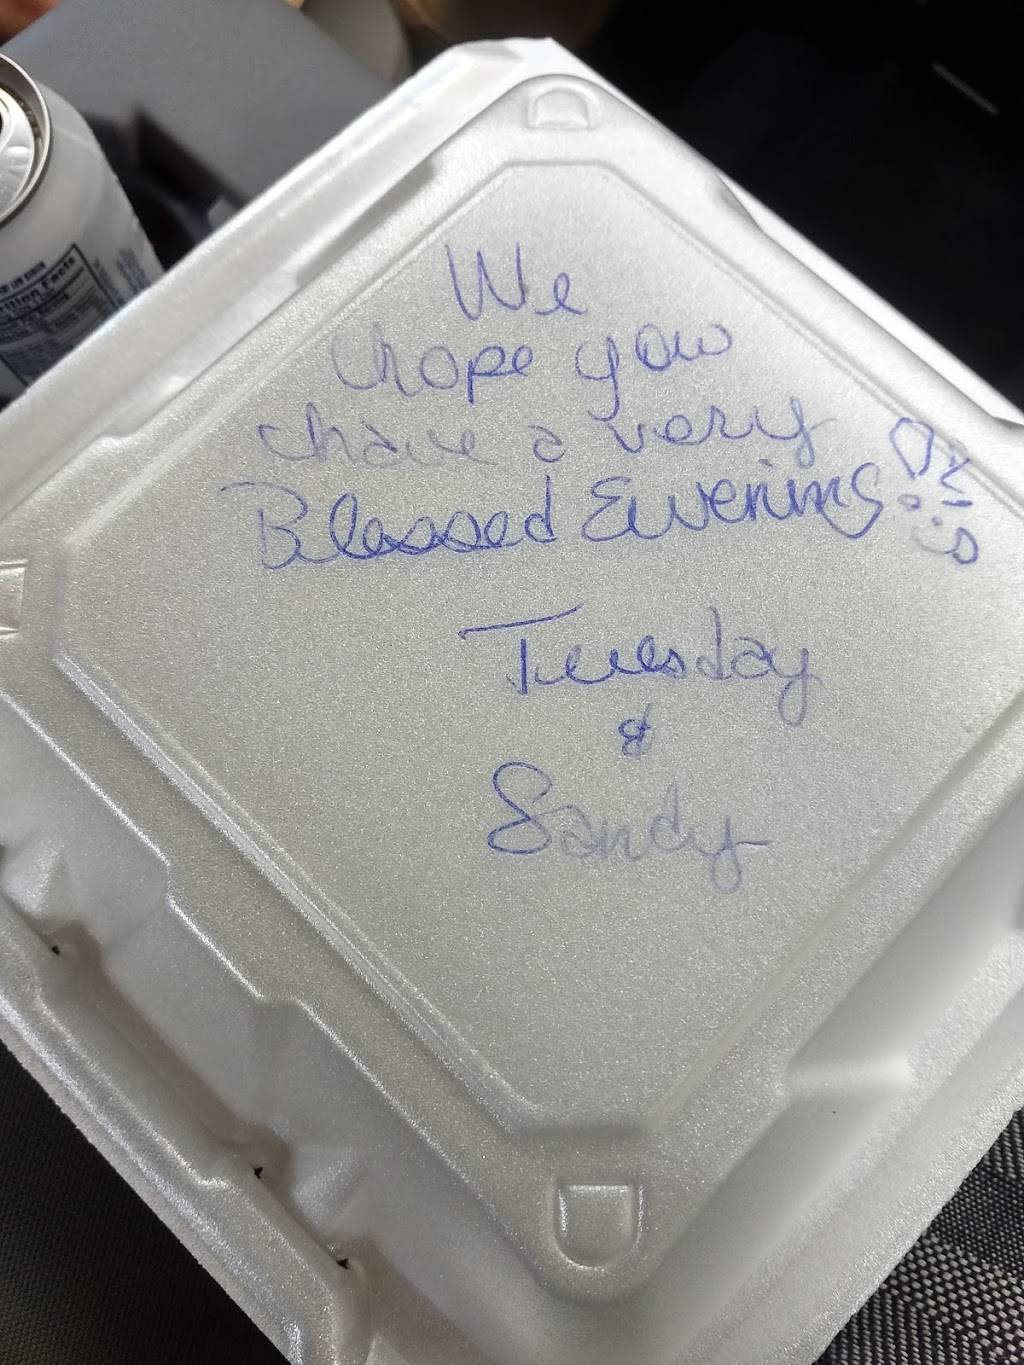 We
hope you
have a very
Blessed Evening!!
Tuesday
&
Sandy
Facts